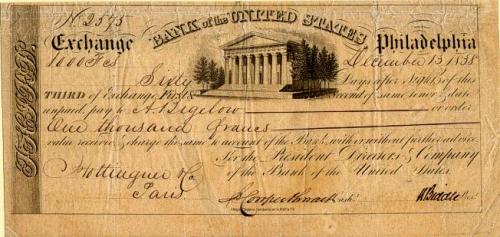 No 2575
BANK of the UNITED STATES
Exchange Philadelphia
1000 Fcs December 13, 1838
Sixty Days after Sight of this
THIRD of Exchange, First & Second of same tenor & date
unpaid, pay to A. Bigelow or order
One thousand francs
value received & charge the same to account of the Bank, with or without further advice.
For the President Directors & Company
of the Bank of the United States.
Hottinguer & Co
Paris
Cash.
N Biddle Pres.
THIRD